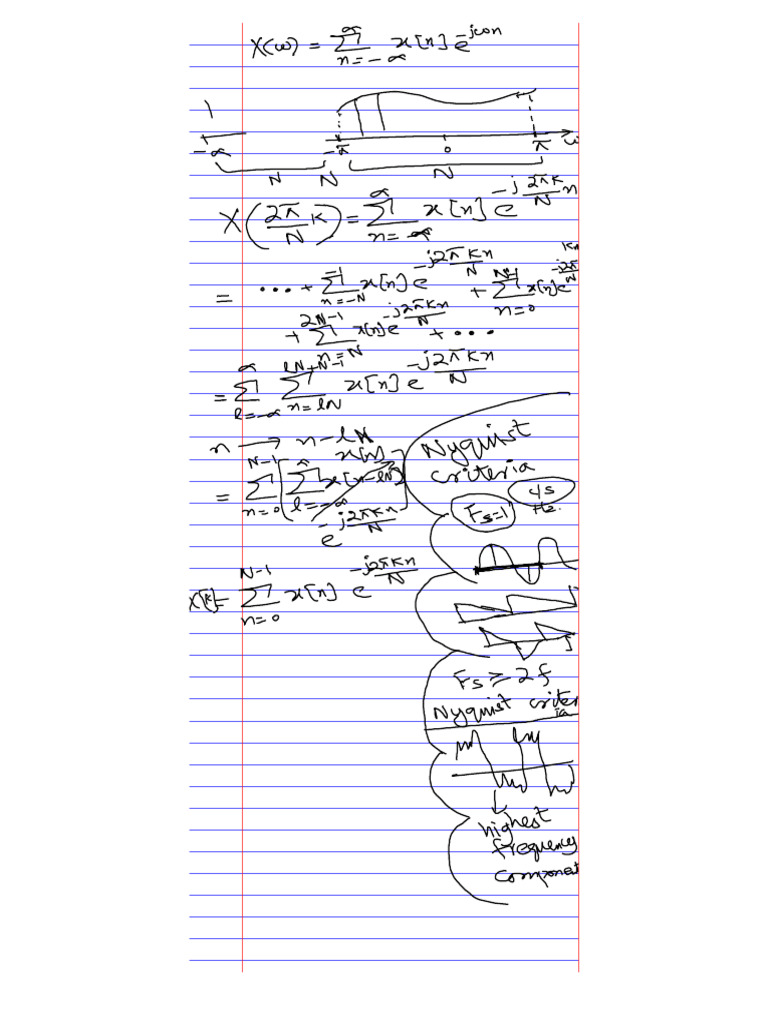 X(ω) = ∑_{n=-∞}^{∞} x[n] e^{-jωn}
1
-∞ -π 0 π ω
N N N
X(2π/N K) = ∑_{n=-∞}^{∞} x[n] e^{-j 2πK/N n}
= ... + ∑_{n=-N}^{-1} x[n] e^{-j2πKn/N} + ∑_{n=0}^{N-1} x[n] e^{-j2π/N Kn}
+ ∑_{n=N}^{2N-1} x[n] e^{-j2πKn/N} + ...
= ∑_{l=-∞}^{∞} ∑_{n=lN}^{lN+N-1} x[n] e^{-j2πKn/N}
n → n-lN
x[n]
= ∑_{n=0}^{N-1} [∑_{l=-∞}^{∞} x[n-lN]] e^{-j2πKn/N}
X[K] = ∑_{n=0}^{N-1} x[n] e^{-j2πKn/N}
Nyquist
criteria
Fs=1
Hz.
Fs ≥ 2f
Nyquist criteria
highest
frequency
component